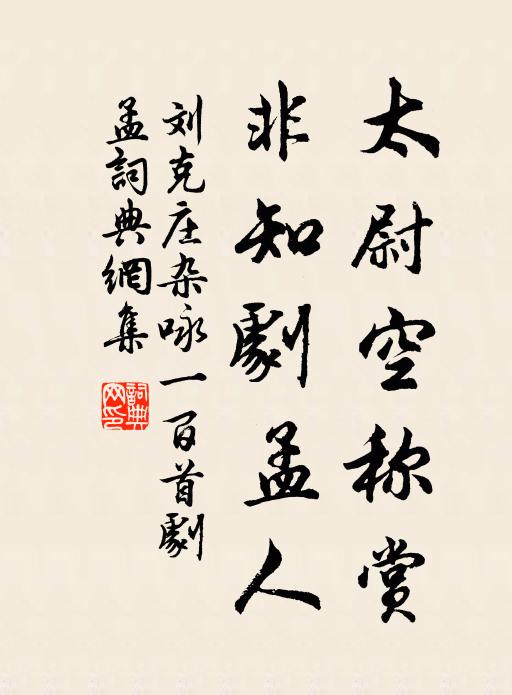 太尉空称赏
非知劇孟人
刘克庄杂咏一百首劇
孟詞典網集
詞典网印